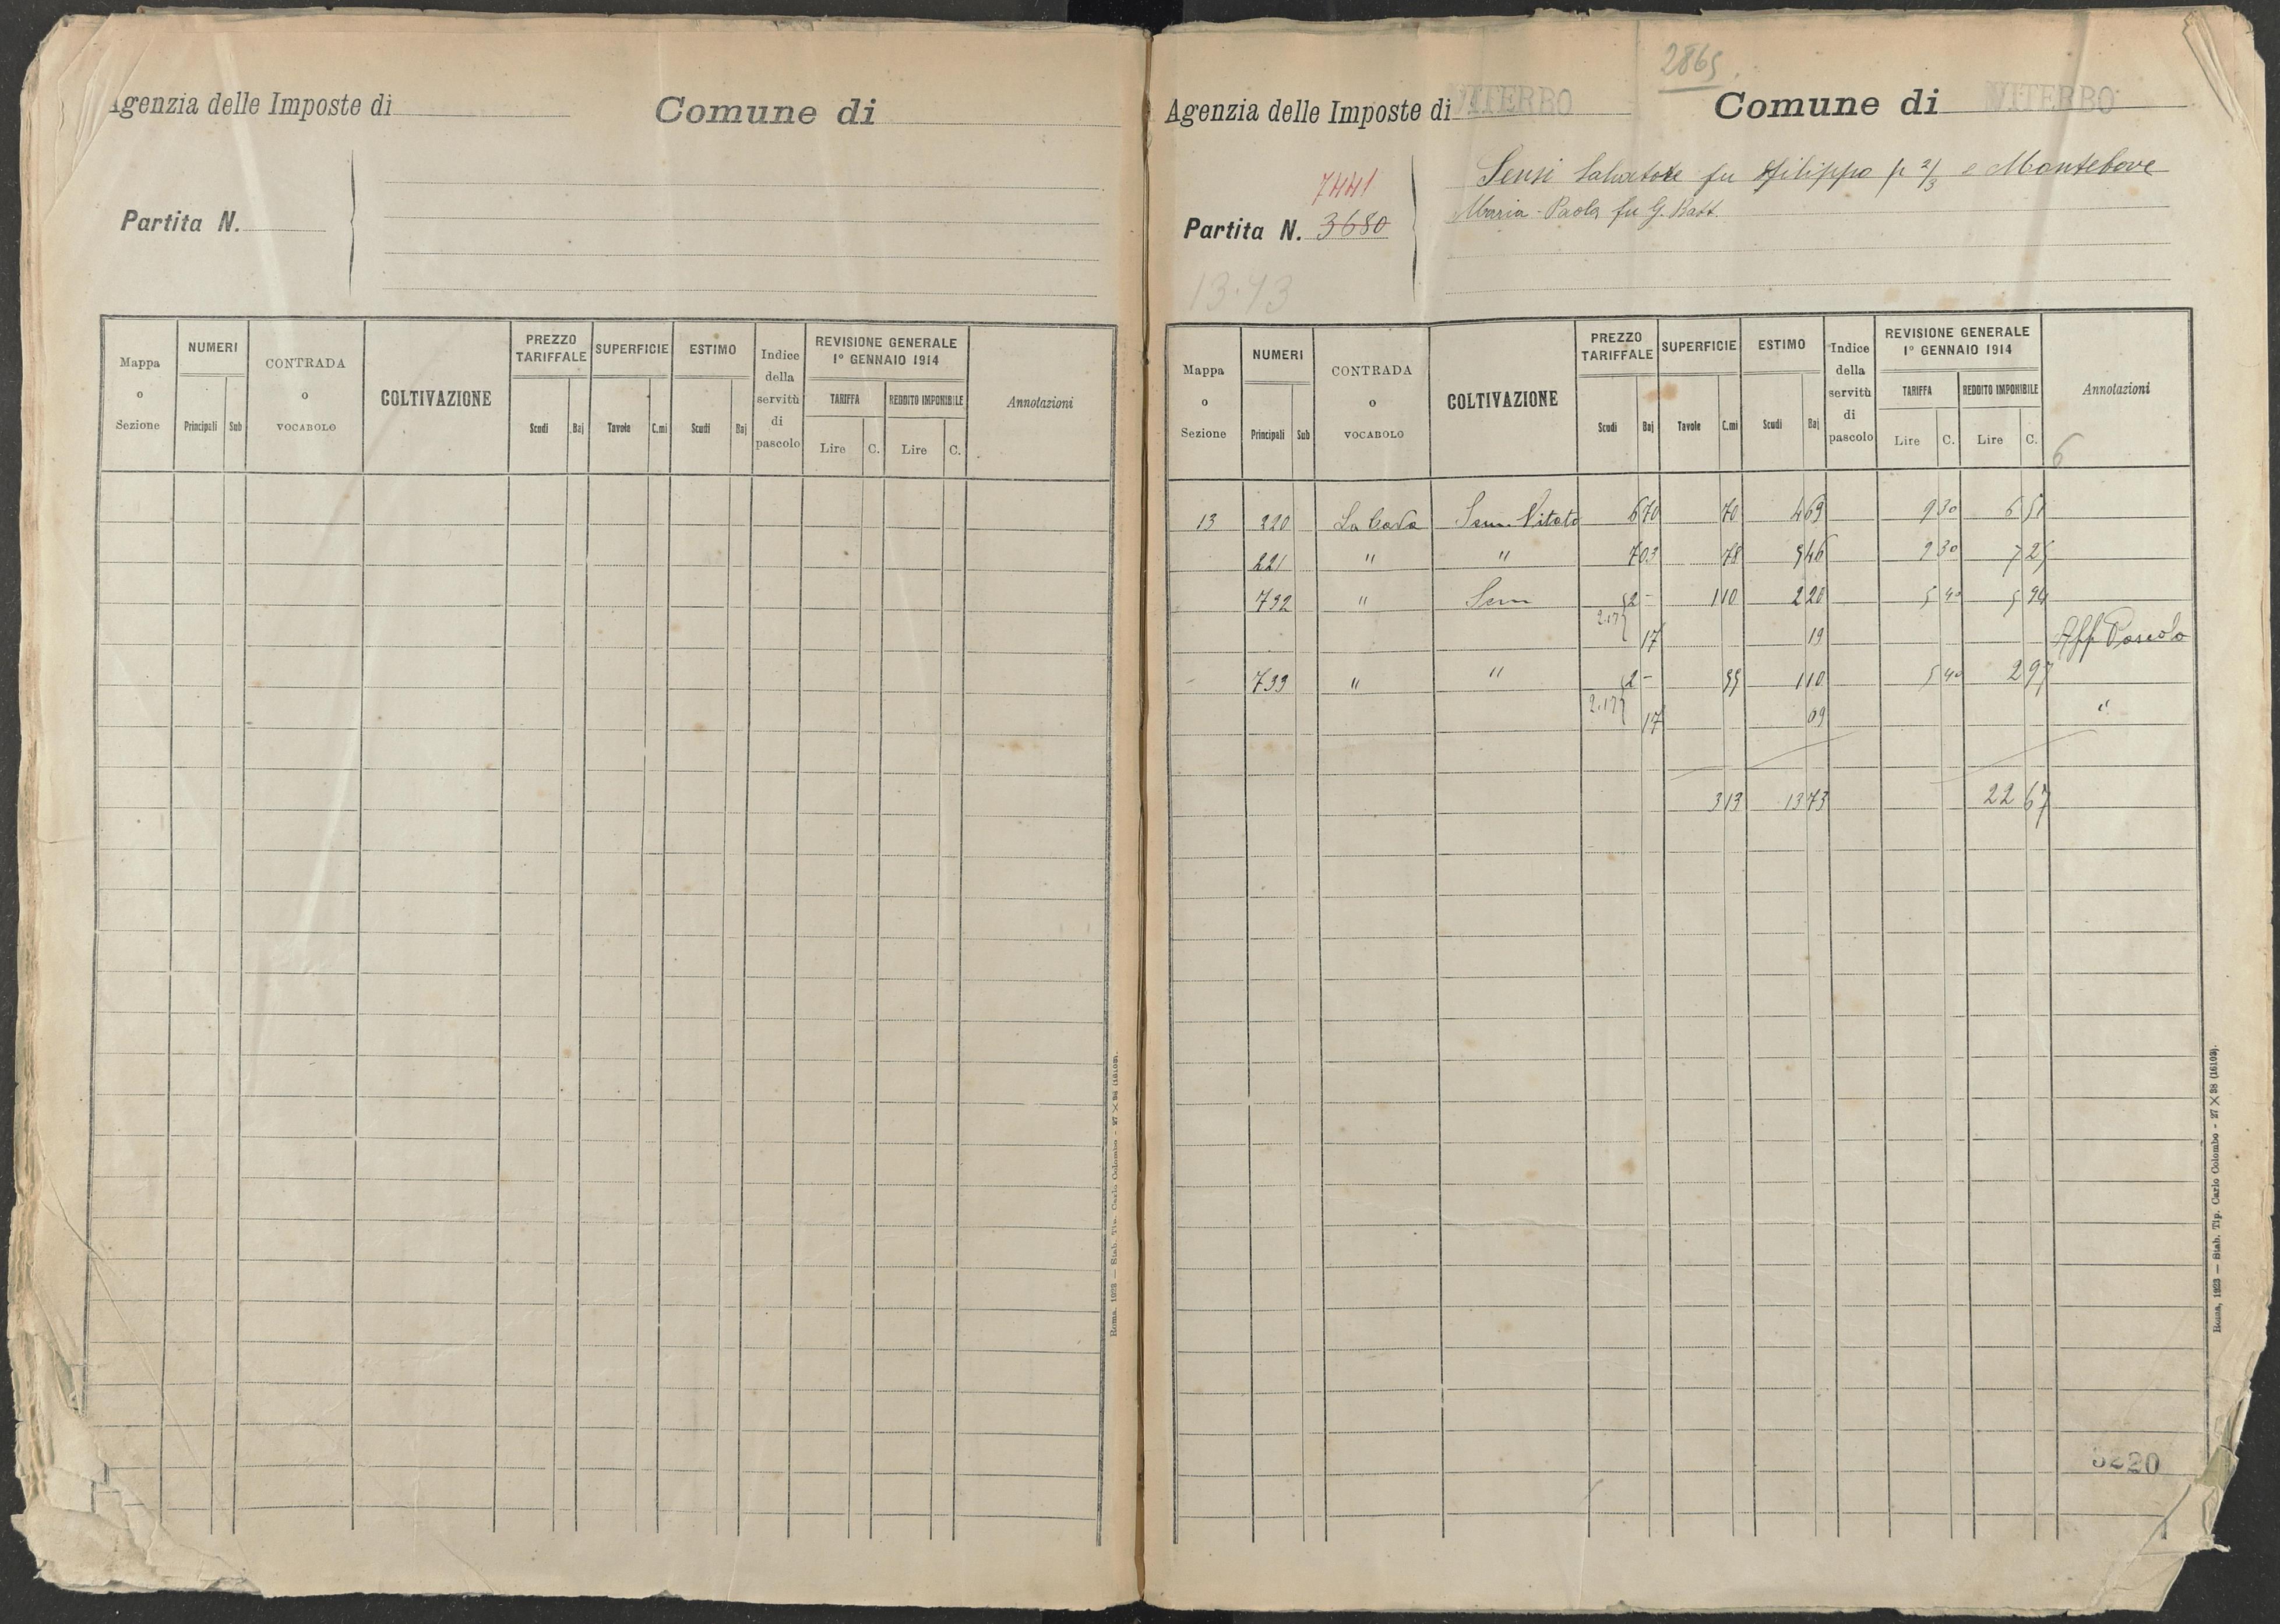 Agenzia delle Imposte di
Comune di
Partita N.
Mappa o Sezione | NUMERI Principali Sub | CONTRADA o VOCABOLO | COLTIVAZIONE | PREZZO TARIFFALE Scudi Baj | SUPERFICIE Tavole C.mi | ESTIMO Scudi Baj | Indice della servitù di pascolo | REVISIONE GENERALE 1° GENNAIO 1914 TARIFFA Lire C. REDDITO IMPONIBILE Lire C. | Annotazioni
Roma, 1923 — Stab. Tip. Carlo Colombo - 27 X 38 (16103).
2865.
Agenzia delle Imposte di VITERBO
Comune di VITERBO
7441
Partita N. 3680
Sensi Salvatore fu Filippo p 2/3 e Montebove
Maria-Paola fu G. Batt.
13.73
Mappa o Sezione | NUMERI Principali Sub | CONTRADA o VOCABOLO | COLTIVAZIONE | PREZZO TARIFFALE Scudi Baj | SUPERFICIE Tavole C.mi | ESTIMO Scudi Baj | Indice della servitù di pascolo | REVISIONE GENERALE 1° GENNAIO 1914 TARIFFA Lire C. REDDITO IMPONIBILE Lire C. | Annotazioni
6
13 220 La Cava Sem. Vitato 6 70 70 4 69 9 30 6 51
221 " " 7 03 78 5 46 9 30 7 25
732 " Sem 2 - 1 10 2 20 5 40 5 94
2.17 17 19 Aff Pascolo
733 " " 2 - 55 1 10 5 40 2 97
2.17 17 09 "
3 13 13 73 22 67
3220
Roma, 1923 — Stab. Tip. Carlo Colombo - 27 X 38 (16103).